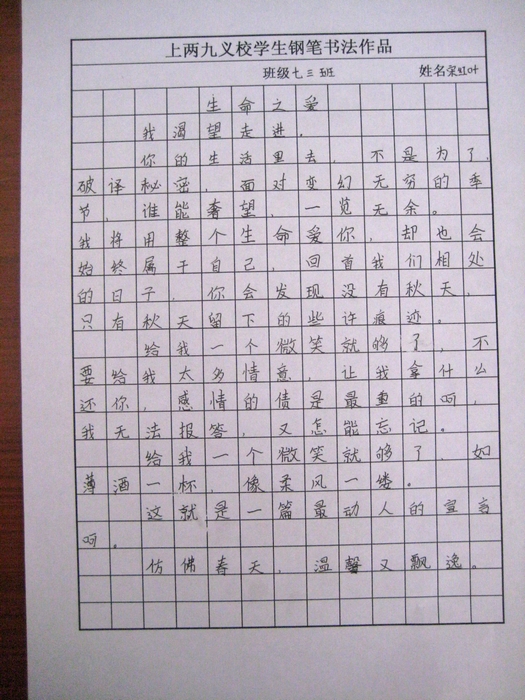 上两九义校学生钢笔书法作品
班级七三班 姓名宋虹叶
生命之爱
我渴望走进.
你的生活里去,不是为了,
破译秘密,面对变幻无穷的季
节,谁能奢望,一览无余。
我将用整个生命爱你,却也会
始终属于自己,回首我们相处
的日子,你会发现没有秋天,
只有秋天留下的些许痕迹。
给我一个微笑就够了,不
要给我太多情意,让我拿什么
还你,感情的债是最重的呵,
我无法报答,又怎能忘记。
给我一个微笑就够了,如
薄酒一杯,像柔风一缕。
这就是一篇最动人的宣言
呵。
仿佛春天,温馨又飘逸。